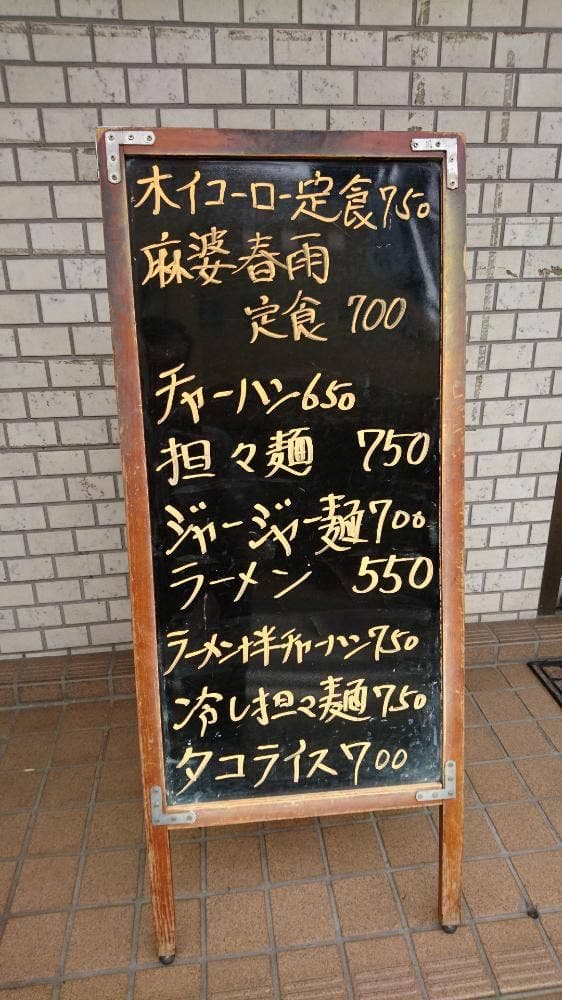 ホイコーロー定食750
麻婆春雨
定食 700
チャーハン650
担々麺 750
ジャージャー麺700
ラーメン 550
ラーメン+半チャーハン750
冷し担々麺750
タコライス700